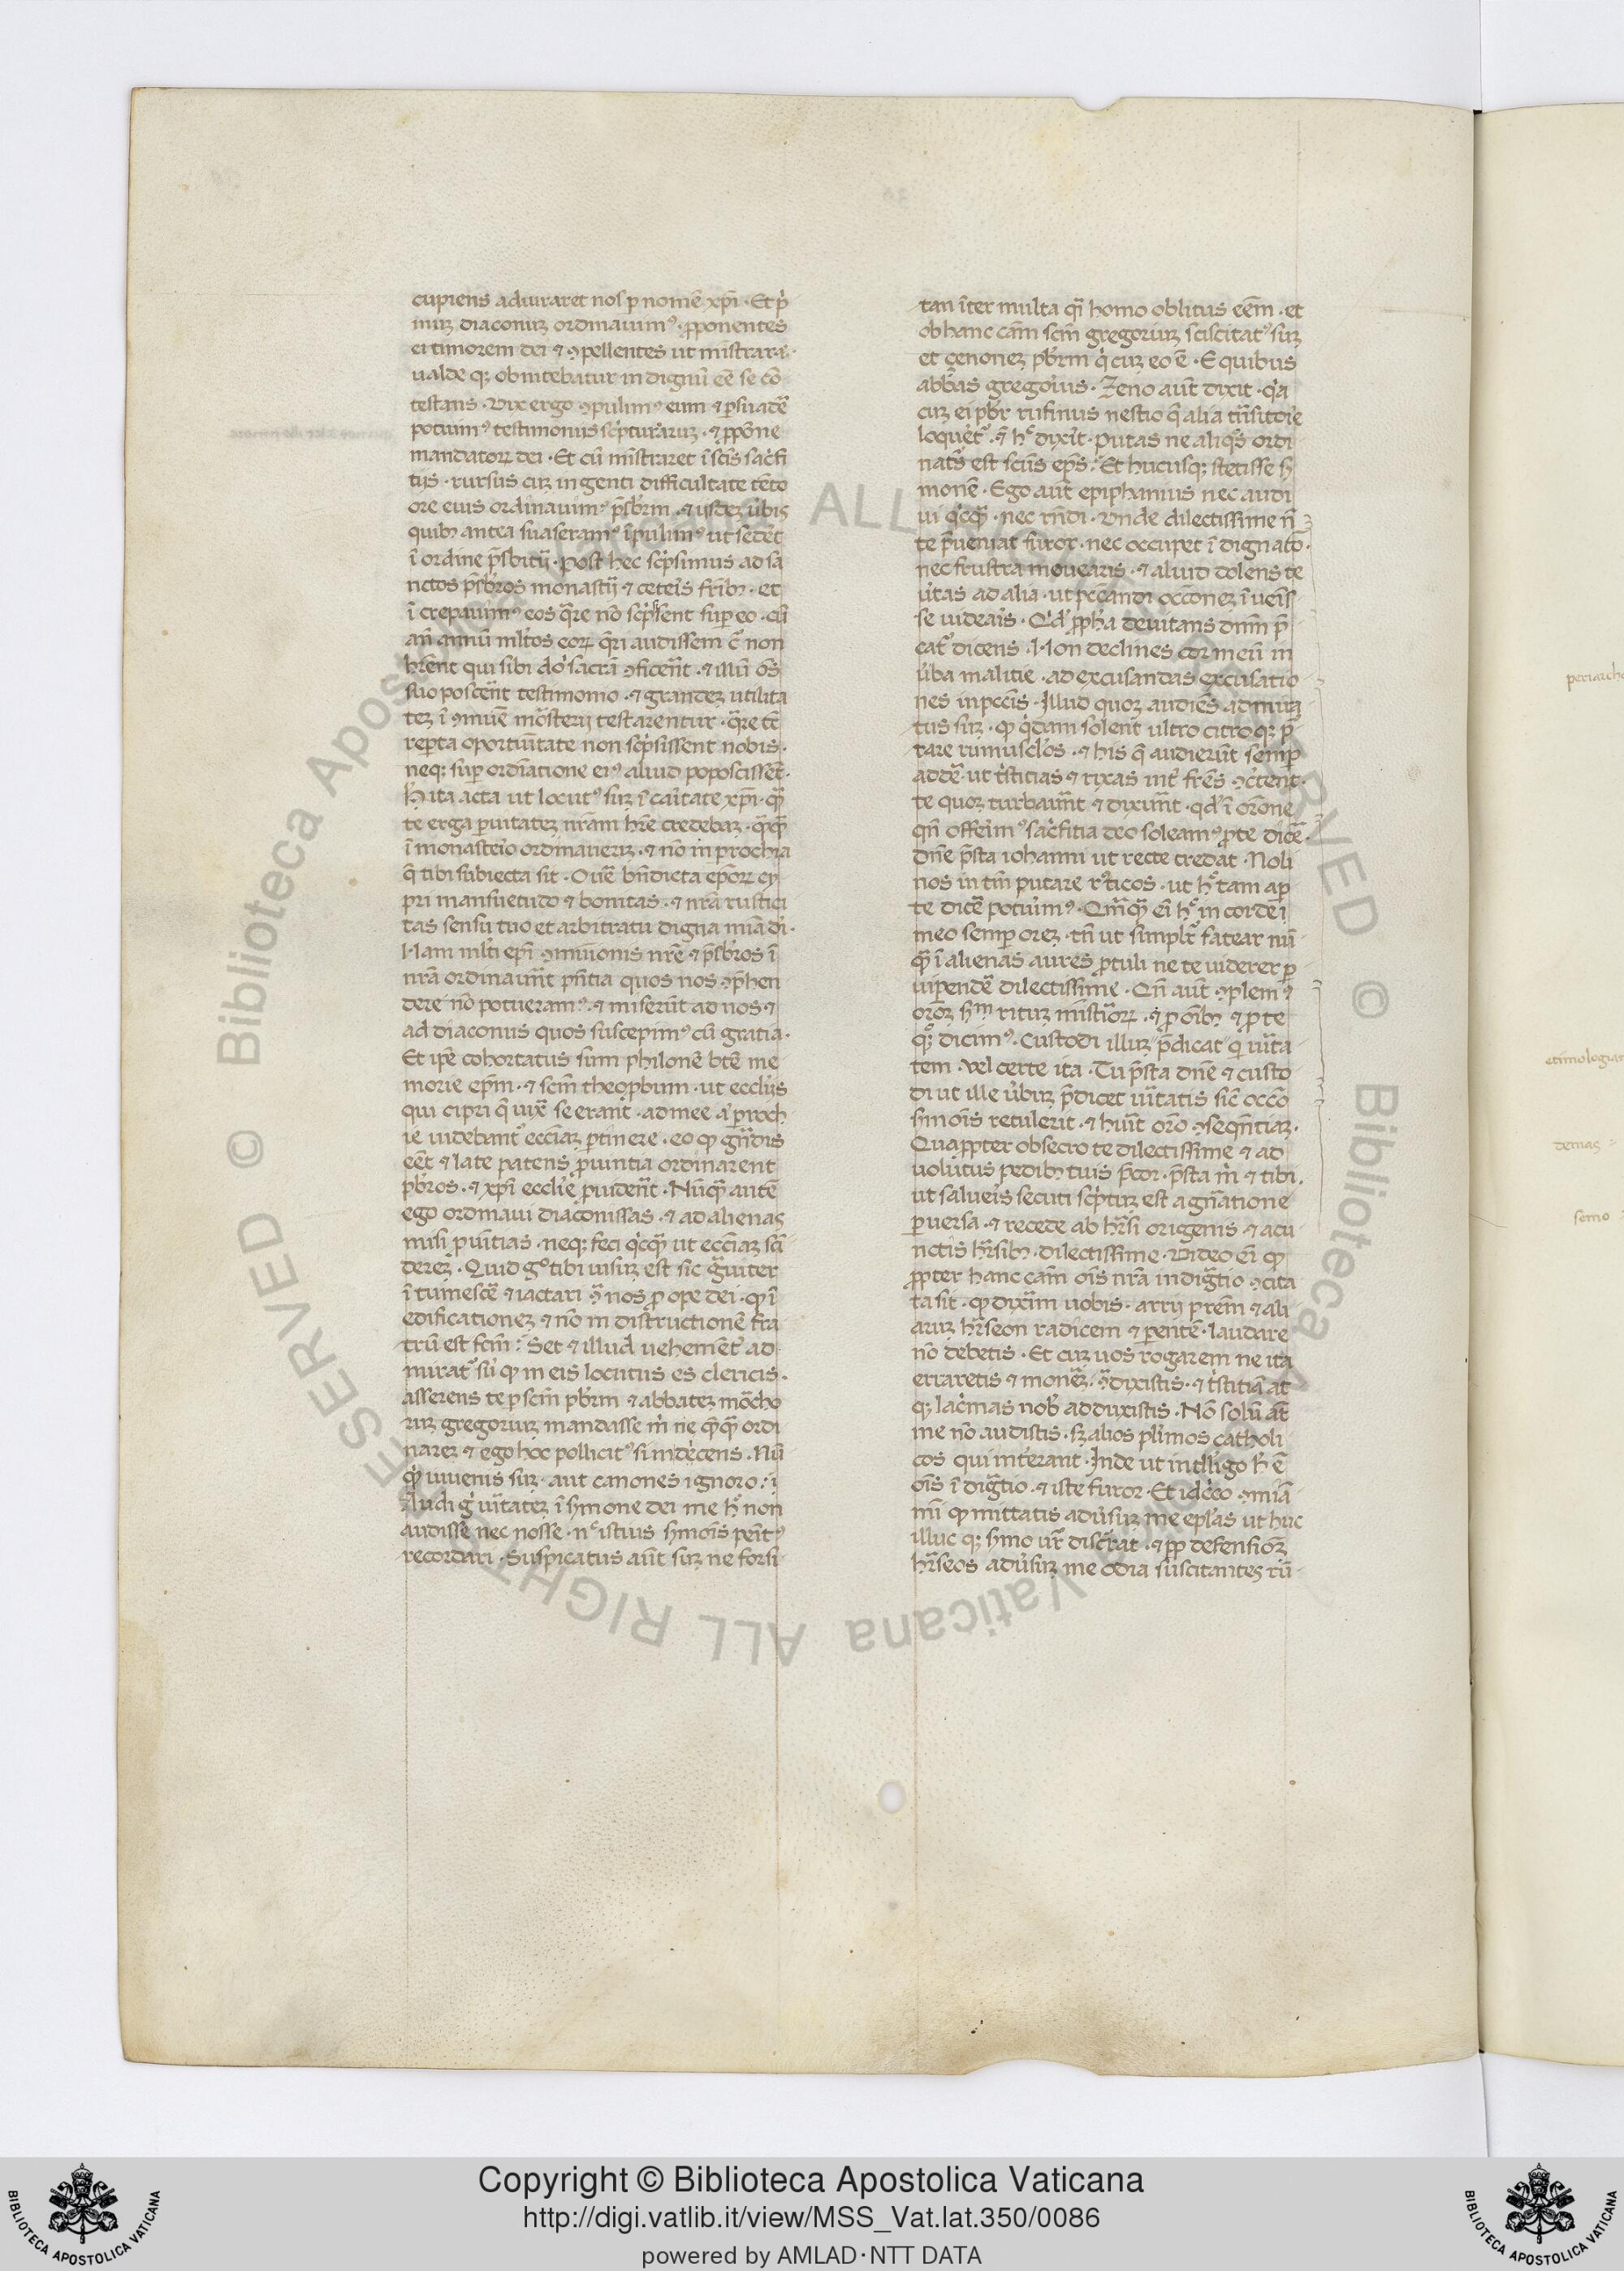 cupiens adiuraret nos ꝑ nomē xp̄i · Et pͥ
muꝫ diaconuꝫ ordinauimꝰ · ꝓponentes
ei timorem dei ⁊ ꝯpellentes ut mīstraret ·
ualde qꝫ obnitebatur indignū eē̄ se cō
testans · Vix ergo ꝯpulimꝰ eum ⁊ ꝑsuadē̄
potuimꝰ testimoniis sc̄pturaruꝫ · ⁊ ꝓpōne
mandatoꝝ dei · Et cū mīstraret ī sc̄is sac̄fi
tijs · rursus cuꝫ ingenti difficultate tēto
ore eius ordinauimꝰ p̄sbr̄m · ⁊ iisdeꝫ ūbis
quibꝫ antea suaseramꝰ īpulimꝰ ut sedēt
ī ordine p̄sbitij · Post hec sc̄psimus ad sa
nctos p̄sbr̄os monastij ⁊ ceteis fr̄ibꝫ · et
ī crepauimꝰ eos q̄re nō sc̄psissent suꝑ eo · cū
an̄ annū ml̄tos eoꝝ q̄ri audissem ꝙ non
hr̄ent qui sibi dn̄i sacrā ꝯficent̄ · ⁊ illū oēs
suo poscent̄ testimonio · ⁊ grandeꝫ utilita
teꝫ ī ꝯmuē̄ mōsterij testarentur · q̄re tc̄
reꝑta oportūitate non sc̄psissent nobis ·
neqꝫ suꝑ ordīatione eiꝰ aliud poposcissēt ·
H̄ ita acta ut locutꝰ suꝫ ī caītate xp̄i · q̄
te erga ꝑuitateꝫ nr̄am hr̄e credebaꝫ · q̄q̄
ī monasteio ordinaueriꝫ · ⁊ nō in ꝑrochia
q̄ tibi subiecta sit · O ūe bn̄dicta ep̄oꝝ cy
pri mansuetudo ⁊ bonitas · ⁊ nr̄a rustici
tas sensu tuo et arbitratu digna mīa dī ·
Nam ml̄ti ep̄i ꝯmūionis nr̄e ⁊ p̄sbr̄os ī
nr̄a ordinauīt ꝓuītia quos nos ꝯp̄hen
dere nō potueramꝰ · ⁊ miserūt ad nos ⁊
ad diaconus quos suscepimꝰ cū gratia ·
Et ipē cohortatus sum philonē bt̄e me
morie ep̄m · ⁊ sc̄m theop̄bum · ut eccl̄ijs
qui cipri q̄ iuxͣ se erant · ad mee āt ꝑroch
ie uidebantᷣ ecc̄iaꝫ ꝑtinere · eo ꝙ gn̄dis
eēt ⁊ late patens ꝓuintia ordinarent
p̄bros · ⁊ xp̄i eccl̄ie ꝓuident̄ · Nūq̄ autē
ego ordinaui diaconissas · ⁊ ad alienas
misi ꝓuītias · neqꝫ feci qͥcq̄ ut ecc̄iaꝫ sci
dereꝫ · Quid gͦ tibi uisuꝫ est sic gͣuiter
ī tumesc̄e ⁊ iactari ꝯͣ nos ꝓ ope dei · ꝙ ī
edificationeꝫ ⁊ nō in distructionē fra
trū est fc̄m · Set ⁊ illud uehemētͬ ad
miratꝰ sū ꝙ in eis locutus es clericis ·
asserens te ꝑ sc̄m pbr̄m ⁊ abbateꝫ mōcho
ruꝫ gregoriuꝫ mandasse mͥ ne q̄q̄ ordi
nareꝫ ⁊ ego hoc pollicitꝰ sim dicens · Nū
qͥd iuuenis suꝫ · aut canones ignoro · i
Audi gͦ ūitateꝫ ī ẜmone dei me hͦ non
audisse nec nosse · nͨ istius ẜmois penitꝰ
recordari · Suspicatus aūt suꝫ ne forsi
tan īter multa qͣ homo oblitus eēm · et
ob hanc cām sc̄m gregoriuꝫ sciscitatꝰ suꝫ
et çenoneꝫ pbr̄m qͥ cuꝫ eo ē · E quibus
abbas gregorius · Zeno aūt dixit · qͥa
cuꝫ ei pbr̄ rufinus nescio q̄ alia trāsitorie
loquet̄ · ⁊ hͦ dixit · Putas ne aliqͦs ordi
natͦ est sc̄us ep̄s · Et hucusqꝫ stetisse ẜ
monē · Ego aūt epiphanius nec audi
ui qͥcq̄ · nec rn̄di · Vnde dilectissime n̄
te p̄ueniat furor · nec occupet ī dignatō ·
nec frustra mouearis · ⁊ aliud dolens te
ūtas ad alia · ut pcc̄andi occoneꝫ ī ueis
se uidearis · Qd̓ ꝓph̄a deuitans dn̄m p̄
catᷣ dicens · Non declines cor meū in
ūba malitie · ad excusandas excusatio
nes in pcc̄is · Illud quoꝫ audiēs admira
tus suꝫ · ꝙ qͥdam solent ultro citro qꝫ p̄
tare rumusclōs · ⁊ his q̄ audierūt semꝑ
addē̄ · ut tͥstitias ⁊ rixas intͬ fr̄es ꝯcitent ·
te quoꝫ turbauīt ⁊ dixunt · qd̓ ī oīone
qn̄ offeimꝰ sac̄fitia deo soleamꝰ ꝓ te dic̄e ·
dn̄e p̄sta iohanni ut recte credat · Noli
nos in tm̄ putare rͣticos · ut hͦ tam aꝑ
te dic̄e potūimꝰ · Qn̄q̄ ei hͦ in corde i
meo semꝑ oreꝫ · tn̄ ut simplr̄ fatear nū
q̄ ī alienas aures ꝓtuli ne te uiderer ꝑ
uipendē̄ dilectissime · Qn̄ aūt ꝯplemꝰ
oroꝫ ẜm rituꝫ mistioꝝ · ⁊ ꝓ oībꝫ ⁊ ꝓ te
qꝫ dicimꝰ · Custodi illuꝫ p̄dicat q̄ ūita
tem · Vel certe ita · Tu p̄sta dn̄e ⁊ custo
di ut ille ūbuꝫ p̄dicet ūitatis sic̄ occō
ẜmois retulerit · ⁊ huīt oīo ꝯseqn̄tiaꝫ ·
Quaꝓpter obsecro te dilectissime ⁊ ad
uolutus pedibꝫ tuis p̄cor · p̄sta mͥ ⁊ tibi ·
ut salueis secuti sc̄ptuꝫ est a gn̄atione
ꝑuersa · ⁊ recede ab hr̄si origenis · ⁊ a cu
nctis hr̄sibꝫ · dilectissime · Video ei ꝙ
ꝓpter hanc cām oīs nr̄a indigͣtio ꝯcita
ta sit · ꝙ dixim uobis · arrij pr̄em ⁊ ali
aruꝫ hr̄seon radicem ⁊ parentē · laudare
nō debetis · Et cuꝫ uos rogarem ne ita
erraretis ⁊ moneꝫ · ꝯͣdixistis · ⁊ tͥstitiā at
qꝫ lac̄mas nob̓ adduxistis · Nō solū āt
me nō audistis · sꝫ alios pl̄imos catholi
cos qui interant · Inde ut intelligo h̄ ē
oīs īdigͣtio · ⁊ iste furor · Et idc̄co ꝯmiā
mī ꝙ mittatis aduͥsuꝫ me epl̄as ut huc
illuc qꝫ ẜmo ur̄ discr̄rat · ⁊ ꝓp defensioꝫ
hr̄seos aduͥsuꝫ me odia suscitantes rū
periarcho
etimologiam
demas
semo
Copyright © Biblioteca Apostolica Vaticana
http://digi.vatlib.it/view/MSS_Vat.lat.350/0086
powered by AMLAD·NTT DATA
BIBLIOTECA APOSTOLICA VATICANA
BIBLIOTECA APOSTOLICA VATICANA
© Biblioteca Apostolica Vaticana ALL RIGHTS RESERVED